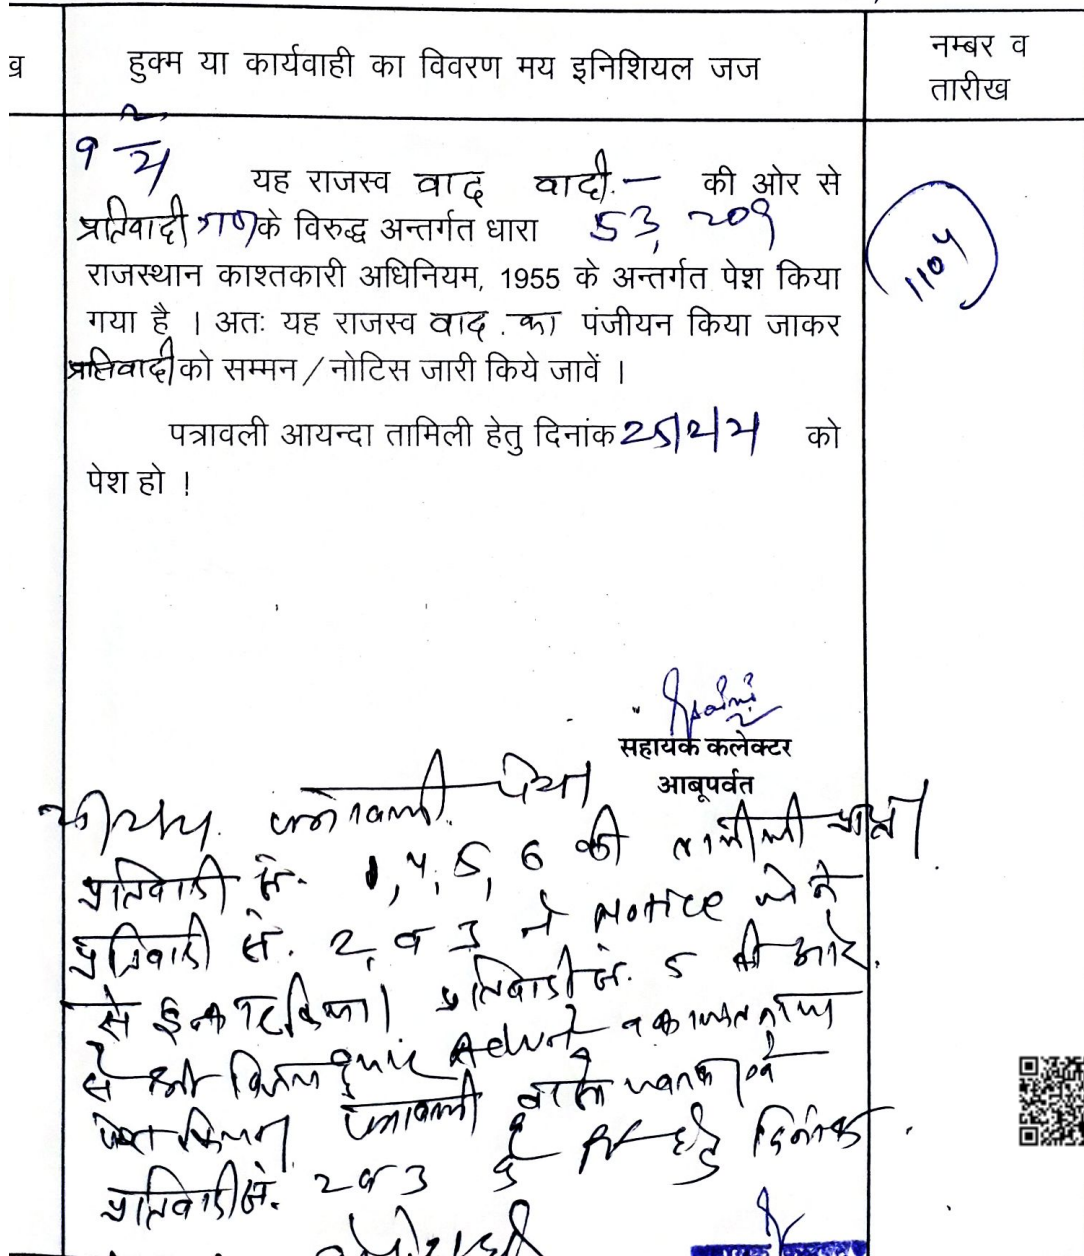 व
हुक्म या कार्यवाही का विवरण मय इनिशियल जज
नम्बर व
तारीख
यह राजस्व वाद वादी.— की ओर से
प्रतिवादी गण के विरुद्ध अन्तर्गत धारा 53, 209
1104
राजस्थान काश्तकारी अधिनियम, 1955 के अन्तर्गत पेश किया
गया है । अतः यह राजस्व वाद का पंजीयन किया जाकर
प्रतिवादी को सम्मन / नोटिस जारी किये जावें ।
पत्रावली आयन्दा तामिली हेतु दिनांक 25/2/21 को
पेश हो !
सहायक कलेक्टर
आबूपर्वत
पत्रावली पेश।
प्रतिवादी सं. 1, 4, 5, 6 की तामीली प्राप्त।
प्रतिवादी सं. 2, व 3 ने Notice लेने
से इन्कार किया। प्रतिवादी सं. 5 की ओर
से श्री कुमार वकालतनामा
पेश किया। पत्रावली वास्ते
प्रतिवादी सं. 2 व 3 दिनांक